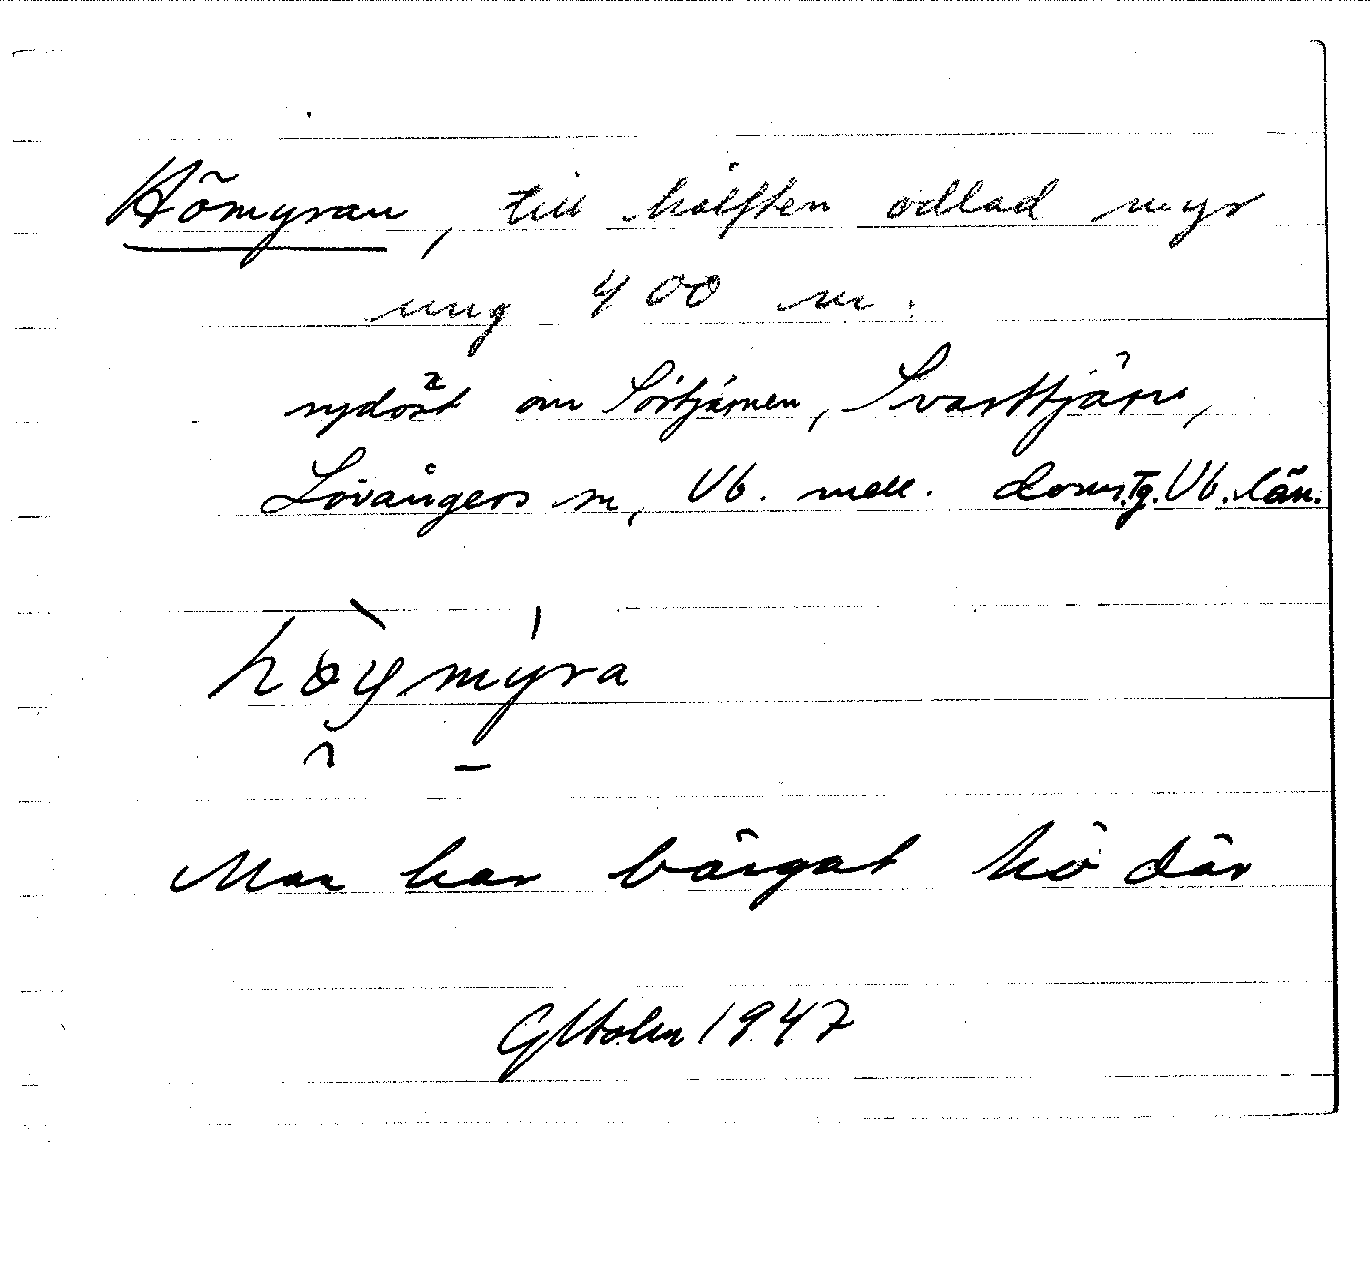 Hömyran, till hälften odlad myr
ung 400 m.
sydöst om Sörtjärnen, Svarttjärn,
Lövångers sn, Vb. mell. doms.tg. Vb. län.
höymyra
Man har bärgat hö där
1947